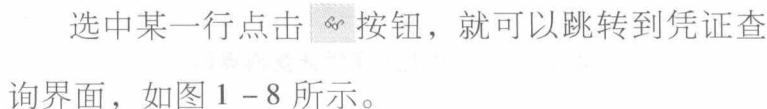 选中某一行点击按钮，就可以跳转到凭证查
询界面，如图 1－8 所示。